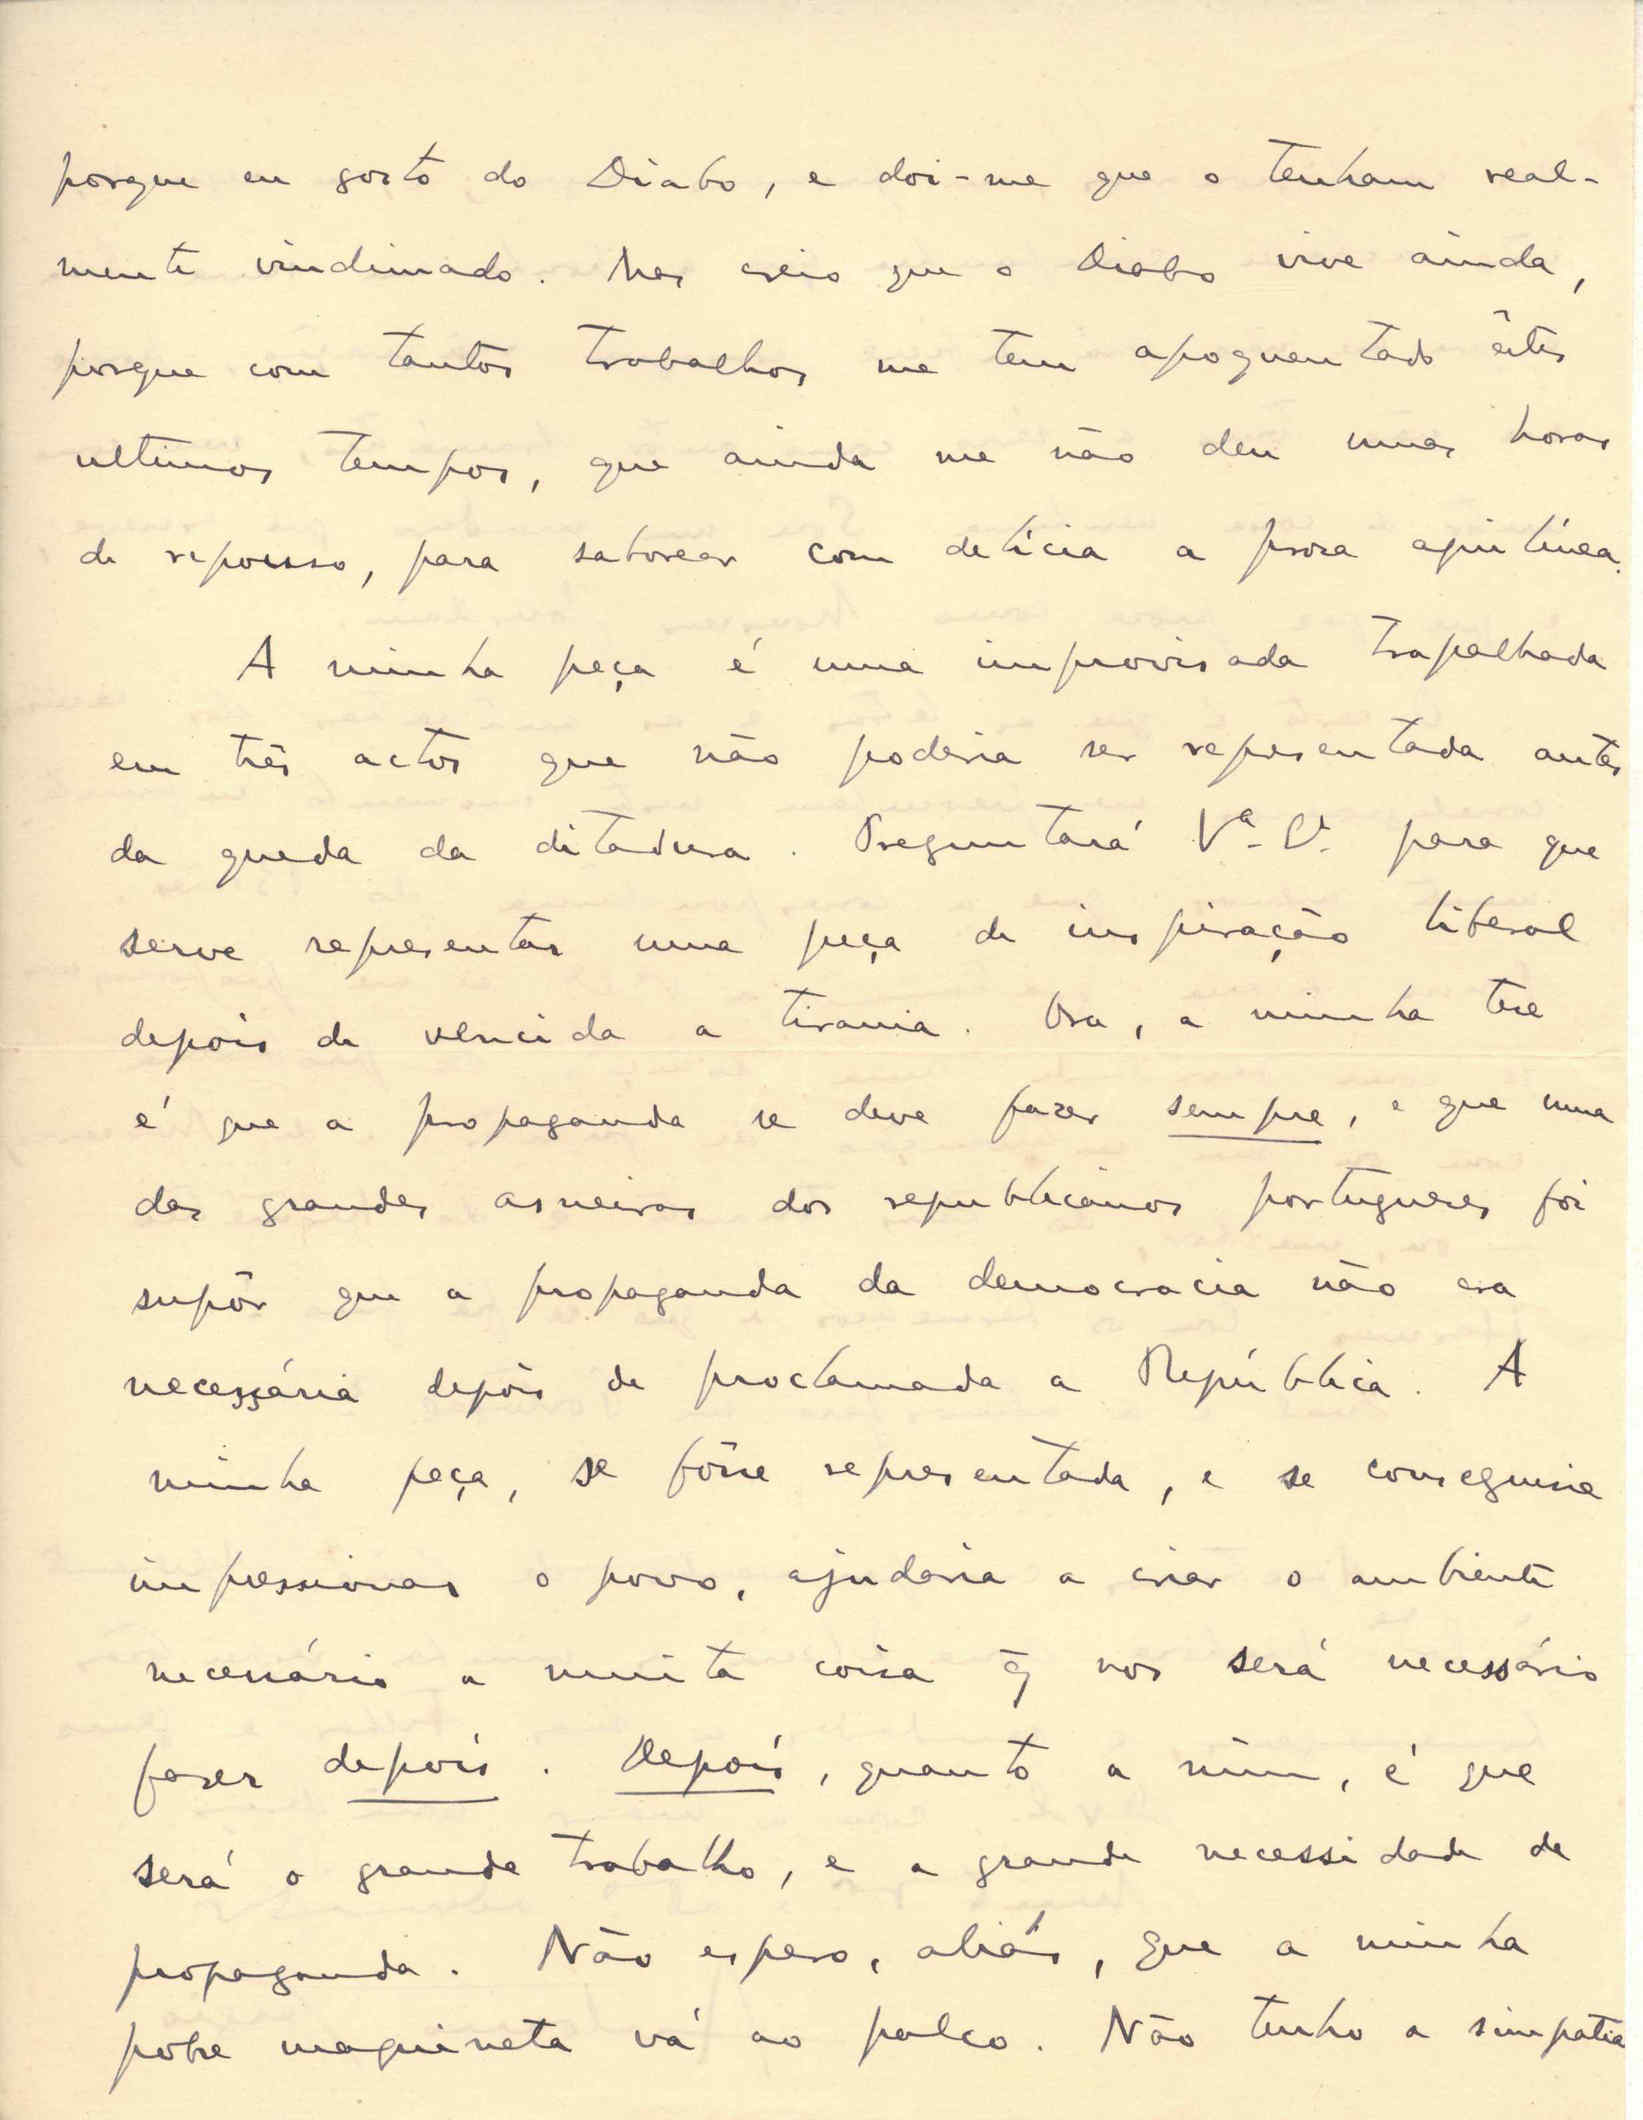 porque eu gosto do Diabo, e doi-me que o tenham real-
mente vindimado. Mas creio que o Diabo vive ainda,
porque com tantos trabalhos me tem apoquentado êstes
ultimos tempos, que ainda me não deu umas horas
de repouso, para saborear com delícia a prosa aquilínea.
A minha peça é uma improvisada trapalhada
em três actos que não poderia ser representada antes
da queda da ditadura. Preguntará V.ª S.ª para que
serve representar uma peça de inspiração liberal
depois de vencida a tirania. Ora, a minha tese
é que a propaganda se deve fazer sempre, e que uma
das grandes asneiras dos republicanos portugueses foi
supôr que a propaganda da democracia não era
necessária depois de proclamada a República. A
minha peça, se fôsse representada, e se conseguisse
impressionar o povo, ajudaria a criar o ambiente
necessário a muita coisa q̃ nos será necessário
fazer depois. Depois, quanto a mim, é que
será o grande trabalho, e a grande necessidade de
propaganda. Não espero, aliás, que a minha
pobre maquineta vá ao palco. Não tenho a simpatia